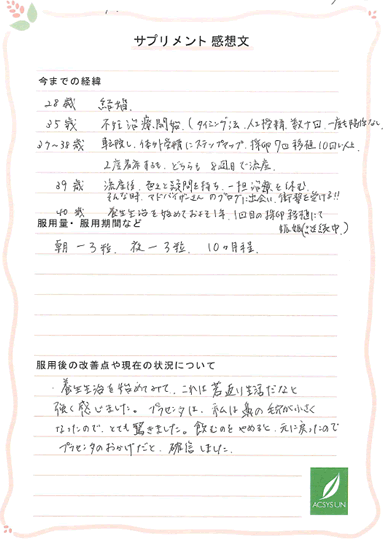 サプリメント 感想文
今までの経緯
28歳 結婚
35歳 不妊治療開始。(タイミング法、人工授精、数十回、一度も陽性なし
37〜38歳 転院し、体外受精にステップアップ、採卵7回移植10回以上
2度着床するも、どちらも8週目で流産。
39歳 流産後、色々と疑問を持ち、一担治療を休む。
そんな時、アドバイザーさんのブログに出会い、衝撃を受ける!!
40歳 養生生活を始めておよそ1年、1回目の採卵移植にて
服用量・服用期間など
妊娠(継続中)
朝ー3粒、夜ー3粒、10ヶ月程。
服用後の改善点や現在の状況について
・養生生活を始めてみて、これは若返り生活だなと
強く感じました。プラセンタは、私は鼻の毛穴が小さく
なったので、とても驚きました。飲むのをやめると、元に戻ったので
プラセンタのおかげだと、確信しました。
ACSYSUN